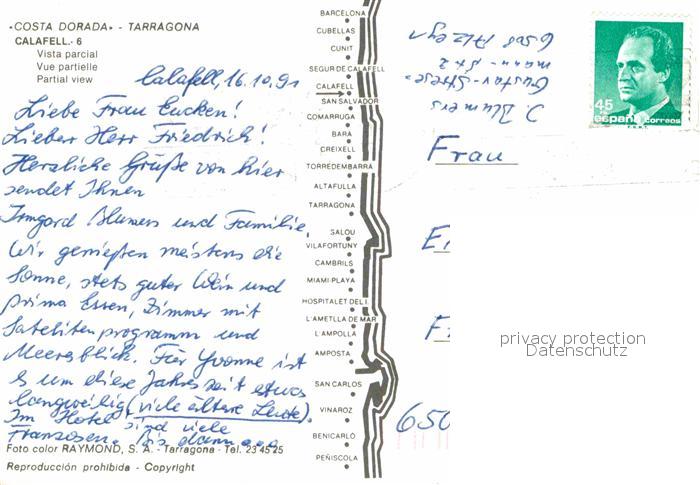 «COSTA DORADA» - TARRAGONA
CALAFELL.- 6
Vista parcial
Vue partielle
Partial view
Calafell, 16.10.91
Liebe Frau Eucken!
Lieber Herr Friedrich!
Herzliche Grüße von hier
sendet Ihnen
Irmgard Blumers und Familie.
Wir genießen meistens die
Sonne, stets guter Wein und
prima Essen, Zimmer mit
Satelitenprogramm und
Meeresblick. Für Yvonne ist
es um diese Jahreszeit etwas
langweilig (viele ältere Leute).
Im Hotel sind viele
Franzosen. Bis dann...
Foto color RAYMOND, S. A. - Tarragona - Tel. 23 45 25
Reproducción prohibida - Copyright
BARCELONA
CUBELLAS
CUNIT
SEGUR DE CALAFELL
CALAFELL
SAN SALVADOR
COMARRUGA
BARA
CREIXELL
TORREDEMBARRA
ALTAFULLA
TARRAGONA
SALOU
VILAFORTUNY
CAMBRILS
MIAMI-PLAYA
HOSPITALET DEL I.
L'AMETLLA DE MAR
L'AMPOLLA
AMPOSTA
SAN CARLOS
VINAROZ
BENICARLO
PEÑISCOLA
J. Blumers
Gustav-Strese-
mann-Str. 2
6508 Alzey
45
españa correos
F.N.M.T.
Frau
650
privacy protection
Datenschutz